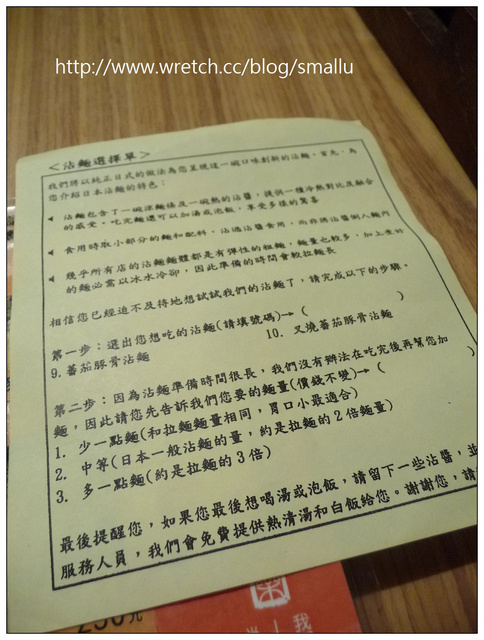 http://www.wretch.cc/blog/smallu
<沾麵選擇單>
我們將以純正日式的做法為您呈現這一碗口味創新的沾麵,首先,為
您介紹日本沾麵的特色:
沾麵包含了一碗涼麵條及一碗熱的沾醬,提供一種冷熱對比及融合
的感受,吃完麵還可以加湯或泡飯,享受多樣的驚喜
食用時取小部分的麵和配料,沾過沾醬食用,而非將沾醬倒入麵內
幾乎所有店的沾麵麵體都是有彈性的粗麵,麵量也較多,加上煮好
的麵必需以冰水冷卻,因此準備的時間會較拉麵長
相信您已經迫不及待地想試試我們的沾麵了,請完成以下的步驟。
第一步:選出您想吃的沾麵(請填號碼)→ ( )
9.蕃茄豚骨沾麵 10. 叉燒蕃茄豚骨沾麵
第二步:因為沾麵準備時間很長,我們沒有辦法在吃完後再幫您加
麵,因此請您先告訴我們您要的麵量(價錢不變)→ ( )
1. 少一點麵(和拉麵麵量相同,胃口小最適合)
2. 中等(日本一般沾麵的量,約是拉麵的2倍麵量)
3. 多一點麵(約是拉麵的3倍)
最後提醒您,如果您最後想喝湯或泡飯,請留下一些沾醬,並
服務人員,我們會免費提供熱清湯和白飯給您。謝謝您,請
250元
我